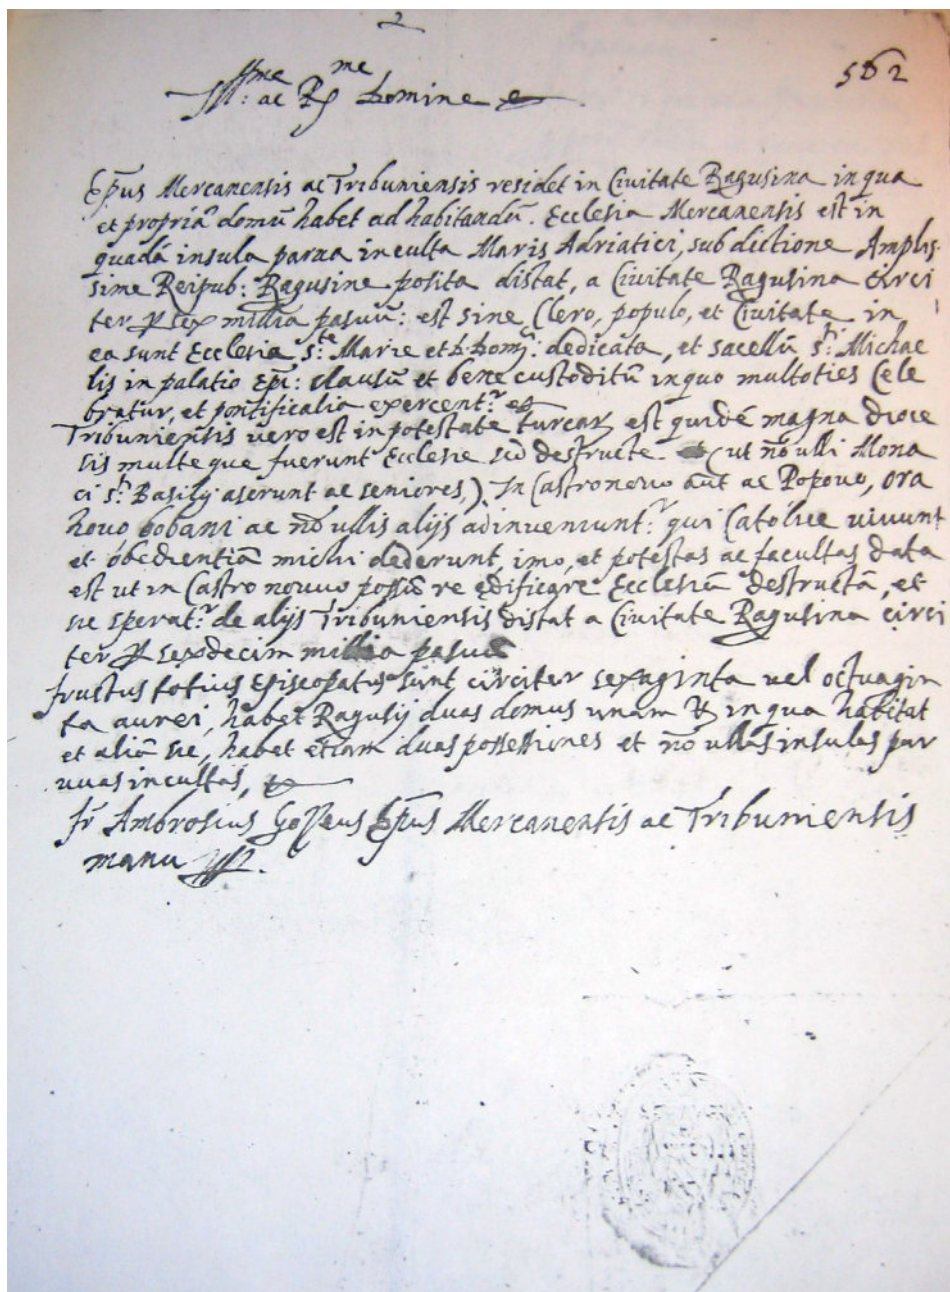 2
562
Ill:me ac R.me Domine
Ep̃us Mercanensis ac Tribuniensis residet in Ciuitate Ragusina in qua
et propriã domũ habet ad habitandũ. Ecclesia Mercanensis est in
quadã insula parua inculta Maris Adriatici, sub dictione Amplis
sime Reipub: Ragusine posita distat, a Ciuitate Ragusina Circi
ter sex millia pasuũ: est sine Clero, populo, et Ciuitate in
ea sunt Ecclesia s.te Marie et dedicata, et sacellũ s.ti Michae
lis in palatio Ep̃i: clausũ et bene custoditũ in quo multoties Cele
bratur, et pontificalia exercent.r
Tribuniensis uero est in potestate turcar est quidẽ magna dioce
sis multe que fuerunt Ecclesie sed destructe. (ut nõ ulli Mona
ci s.ti Basilij aserunt ac seniores,). In Castronouo aut ac Popouo, ora
houo bobani ac nõ ullis alijs adinueniunt.r qui Catolice uiuunt
et obedientiã michi dederunt, imo, et potestas ac facultas data
est ut in Castro nouuo possĩ re edificare Ecclesiã destructã, et
sic sperat.r de alijs Tribuniensis distat a Ciuitate Ragusina circi
ter sexdecim millia pasuũ
fructus totius Episcopatus sunt circiter sexaginta uel octuagin
ta aurei, habet Ragusij duas domus unam in qua habitat
et aliã sic, habet etiam duas possessiones et nõ ullas insulas par
uuas incultas,
fr Ambrosius Gozeus Ep̃us Mercanensis ac Tribuniensis
manu